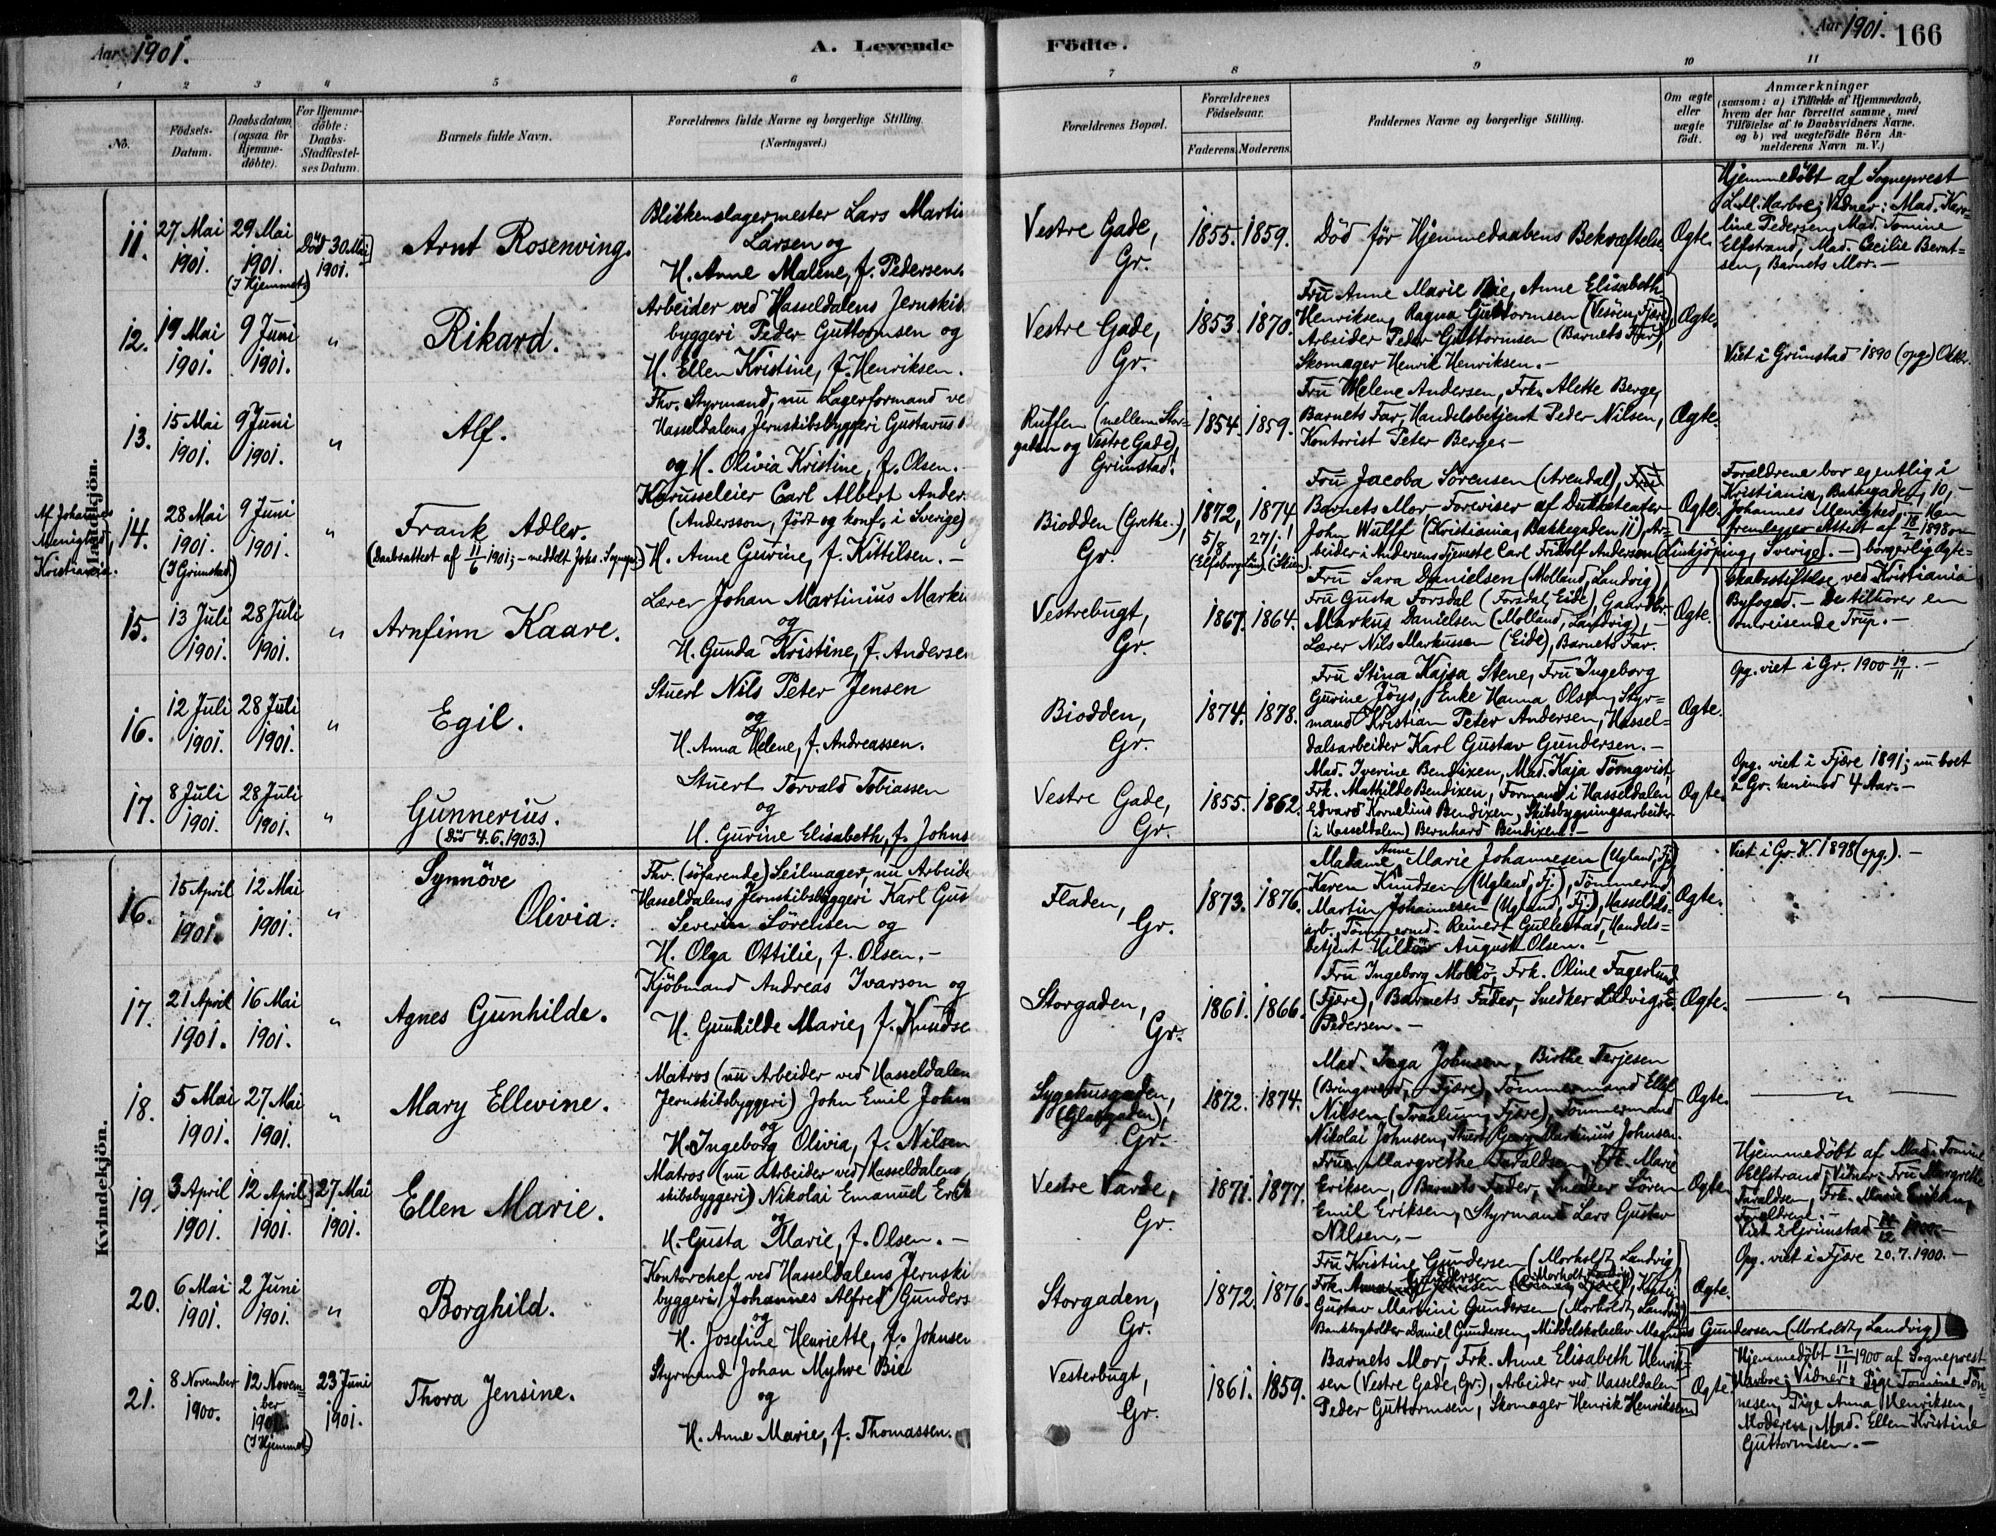 Aar 1901. A. Levende Födte. Aar 1901. 166
1 2 3 4 5 6 7 8 9 10 11
No. Födsels-Datum. Daabsdatum (ogsaa for Hjemmedöbte). For Hjemmedöbte: Daabs-Stadfæstelses Datum. Barnets fulde Navn. Forældrenes fulde Navne og borgerlige Stilling. (Næringsvei.) Forældrenes Bopæl. Forældrenes Födselsaar. Faderens. Moderens. Faddernes Navne og borgerlige Stilling. Om ægte eller uægte födt. Anmærkninger (saasom: a) i Tilfælde af Hjemmedaab, hvem der har forrettet samme, med Tilföielse af to Daabsvidners Navne. og b) ved uægtefödte Börn Anmelderens Navn m. V.)
Mandkjön.
11. 27 Mai 1901. 29 Mai 1901. (I Hjemmet) Död 30 Mai 1901. Arnt Rosenving.
Blikkenslagermester Lars Martin
Larsen og
H. Anne Malene, f. Pedersen.
Vestre Gade, Gr. 1855. 1859.
Död för Hjemmedaabens Bekræftelse Ægte.
Hjemmedöbt af Sogneprest
L. M. Harboe; Vidner: Mad. Karo-
line Pedersen, Mad. Tomine
Elfstrand, Mad. Cecilie Bernt-
sen, Barnets Mor.-
12. 19 Mai 1901. 9 Juni 1901. " Rikard.
Arbeider ved Hasseldalens Jernskibs
byggeri Peder Guttormsen og
H. Ellen Kristine, f. Henriksen.
Vestre Gade, Gr. 1853. 1870.
Fru Anne Marie Bie, Anne Elisabeth
Henriksen, Ragna Guttormsen (Vesöen, Fjære),
Arbeider Peder Guttormsen (Barnets Far),
Skomager Henrik Henriksen.-
Ægte.
Viet i Grimstad 1890 (opg.) Oktbr.
13. 15 Mai 1901. 9 Juni 1901. " Alf.
Fhv. Styrmand, nu Lagerformand ved
Hasseldalens Jernskibsbyggeri Gustavus B
og H. Olivia Kristine, f. Olsen.-
Ruffen (mellem Stor-
gaden og Vestre Gade),
Grimstad. 1854. 1859.
Fru Helene Andersen, Frk. Alette Berge,
Barnets Far, Handelsbetjent Peder Nilsen,
Kontorist Peter Berge.-
Ægte.
Af Johannes Menighed, Kristiania.
14. 28 Mai 1901. (I Grimstad) 9 Juni 1901. " Frank Adler.
(Daabsattest af 11/6 1901; - meddelt Johs. Sognepr.)
Karusseleier Carl Albert Anders
(Andersson, födt og konf. i Sverige) og
H. Anne Gurine, f. Kittilsen.-
Biodden (Grethe.), Gr. 1872, 5/8 (Elfsborgs län). 1874, 27/1. (Skien).
Fru Jacoba Sörensen (Arendal),
Barnets Mor- Foreviser af Dukketeater-
John Wulff (Kristiania, Bakkegaden 11), Ar-
beider i Andersens tjeneste Carl Fridolf Andersen (Linkjöping, Sverige).-
Ægte.
Forældrene bor egentlig i
Kristiania, Bakkegaden 10,-
Johannes Menighed.- Han
fremlegger Attest af 18/2 1898 om
borgerlig Ægte-
skabsstiftelse ved Kristiania
Byfoged.- De tilhörer en
omreisende Trup.-
15. 13 Juli 1901. 28 Juli 1901. " Arnfinn Kaare.
Lærer Johan Martinius Markus
og
H. Gunda Kristine, f. Andersen
Vestrebugt, Gr. 1867. 1864.
Fru Sara Danielsen (Molland, Landvig),
Fru Gusta Forsdal (Forsdal, Eide), Gaardbr.
Markus Danielsen (Molland, Landvig),-
Lærer Nils Markussen (Eide), Barnets Far.
Ægte.
16. 12 Juli 1901. 28 Juli 1901. " Egil.
Stuert Nils Peter Jensen
og
H. Anna Helene, f. Andreassen.
Biodden, Gr. 1874. 1878.
Fru Stina Kajsa Stene, Fru Ingeborg
Gurine Jöys, Enke Hanna Olsen, Styr-
mand Kristian Peter Andersen, Hassel-
dalsarbeider Karl Gustav Gundersen.-
Ægte.
Opg. viet i Gr. 1900 19/11.-
17. 8 Juli 1901. 28 Juli 1901. " Gunnerius.
(Död 4.6.1903.)
Stuert Torvald Tobiassen
og
H. Gurine Elisabeth, f. Johns
Vestre Gade, Gr. 1855. 1862.
Mad. Iverine Bendixen, Mad. Kaja Törnqvist
Frk. Mathilde Bendixen, Formand i Hasseldalen
Edvard Kornelius Bendixen, Skibsbygningsarbeider
(i Hasseldalen) Bernhard Bendixen.-
Ægte.
Opg. viet i Fjære 1891; nu boet
i Gr. henimod 4 Aar.-
Kvindekjön.
16. 15 April 1901. 12 Mai 1901. " Synnöve
Olivia.
Fhv. (söfarende) Seilmager, nu Arbeide
Hasseldalens Jernskibsbyggeri Karl Gust
Severin Sörensen og
H. Olga Ottilie, f. Olsen.-
Fladen, Gr. 1873. 1876.
Madame Anne Marie Johannesen (Ugland, Fj.),
Karen Knudsen (Ugland, Fj.), Tömmermd.
Martin Johannesen (Ugland, Fj.), Hasseldals-
arb. Tömmermd. Reinert Gullestad, Handels-
betjent August Olsen.-
Ægte.
Viet i Gr. K. 1898 (opg.).-
17. 21 April 1901. 16 Mai 1901. " Agnes Gunhilde.
Kjöbmand Andreas Ivarson og
H. Gunhilde Marie, f. Knudse
Storgaden, Gr. 1861. 1866.
Fru Ingeborg Mollö, Frk. Oline Fagerlund
(Fjære), Barnets Fader, Snedker Ludvig
Pedersen.-
Ægte. "
18. 5 Mai 1901. 27 Mai 1901. " Mary Ellevine.
Matros (nu Arbeider ved Hasseldalen
Jernskibsbyggeri) John Emil John
og
H. Ingeborg Olivia, f. Nilsen
Sygehusgaden, (Gladgaden), Gr. 1872. 1874.
Mad. Inga Johnsen, Birthe Terjesen
(Bringsværd, Fjære), Tömmermand Ellef
Nilsen (Traalum, Fjære), Tömmermand
Nikolai Johnsen, Stuert Georg Martinius Johnsen.
Ægte. "
19. 3 April 1901. 12 April 1901. 27 Mai 1901. Ellen Marie.
Matros (nu Arbeider ved Hasseldalens
skibsbyggeri) Nikolai Emanuel Erik
og
H. Gusta Marie, f. Olsen.-
Vestre Varde, Gr. 1871. 1877.
Fru Margrethe Taraldsen, Frk. Marie
Eriksen, Barnets Fader, Snedker Sören
Emil Eriksen, Styrmand Lars Gustav
Nilsen.-
Ægte.
Hjemmedöbt af Mad. Tomine
Elfstrand; Vidner: Fru Margrethe
Taraldsen, Frk. Marie Eriksen,
Forældrene.-
Viet i Grimstad
20. 6 Mai 1901. 2 Juni 1901. " Borghild.
Kontorchef ved Hasseldalens Jernski
byggeri Johannes Alfred Gunders
og
H. Josefine Henriette, f. Johnsen
Storgaden, Gr. 1872. 1876.
Fru Kristine Gundersen (Morholt, Landvig),
Frk. Gundersen (Morholt, Landvig),
Gustav Martini Gundersen (Morholdt, Landvig)
Bankbogholder Daniel Gundersen, Middelskoleelev Magnus Gundersen (Morholdt, Landvig)
Ægte.
Opg. viet i Fjære 20.7.1900.-
21. 8 November 1900. 12 Novem-
ber 1900 (I Hjemmet) 23 Juni 1901. Thora Jensine.
Styrmand Johan Myhre Bie
og
H. Anne Marie, f. Thomassen.
Vesterbugt, Gr. 1861. 1859.
Barnets Mor, Frk. Anne Elisabeth Henrik-
sen (Vestre Gade, Gr.), Arbeider ved Hasseldalen
Peder Guttormsen, Skomager Henrik Henriksen
Ægte.
Hjemmedöbt 12/11 1900 af Sogneprest
Harboe; Vidner: Pige Tomine Tön-
nesen, Pige Anna Henriksen,
Moderen, Mad. Ellen Kristine
Guttormsen.-